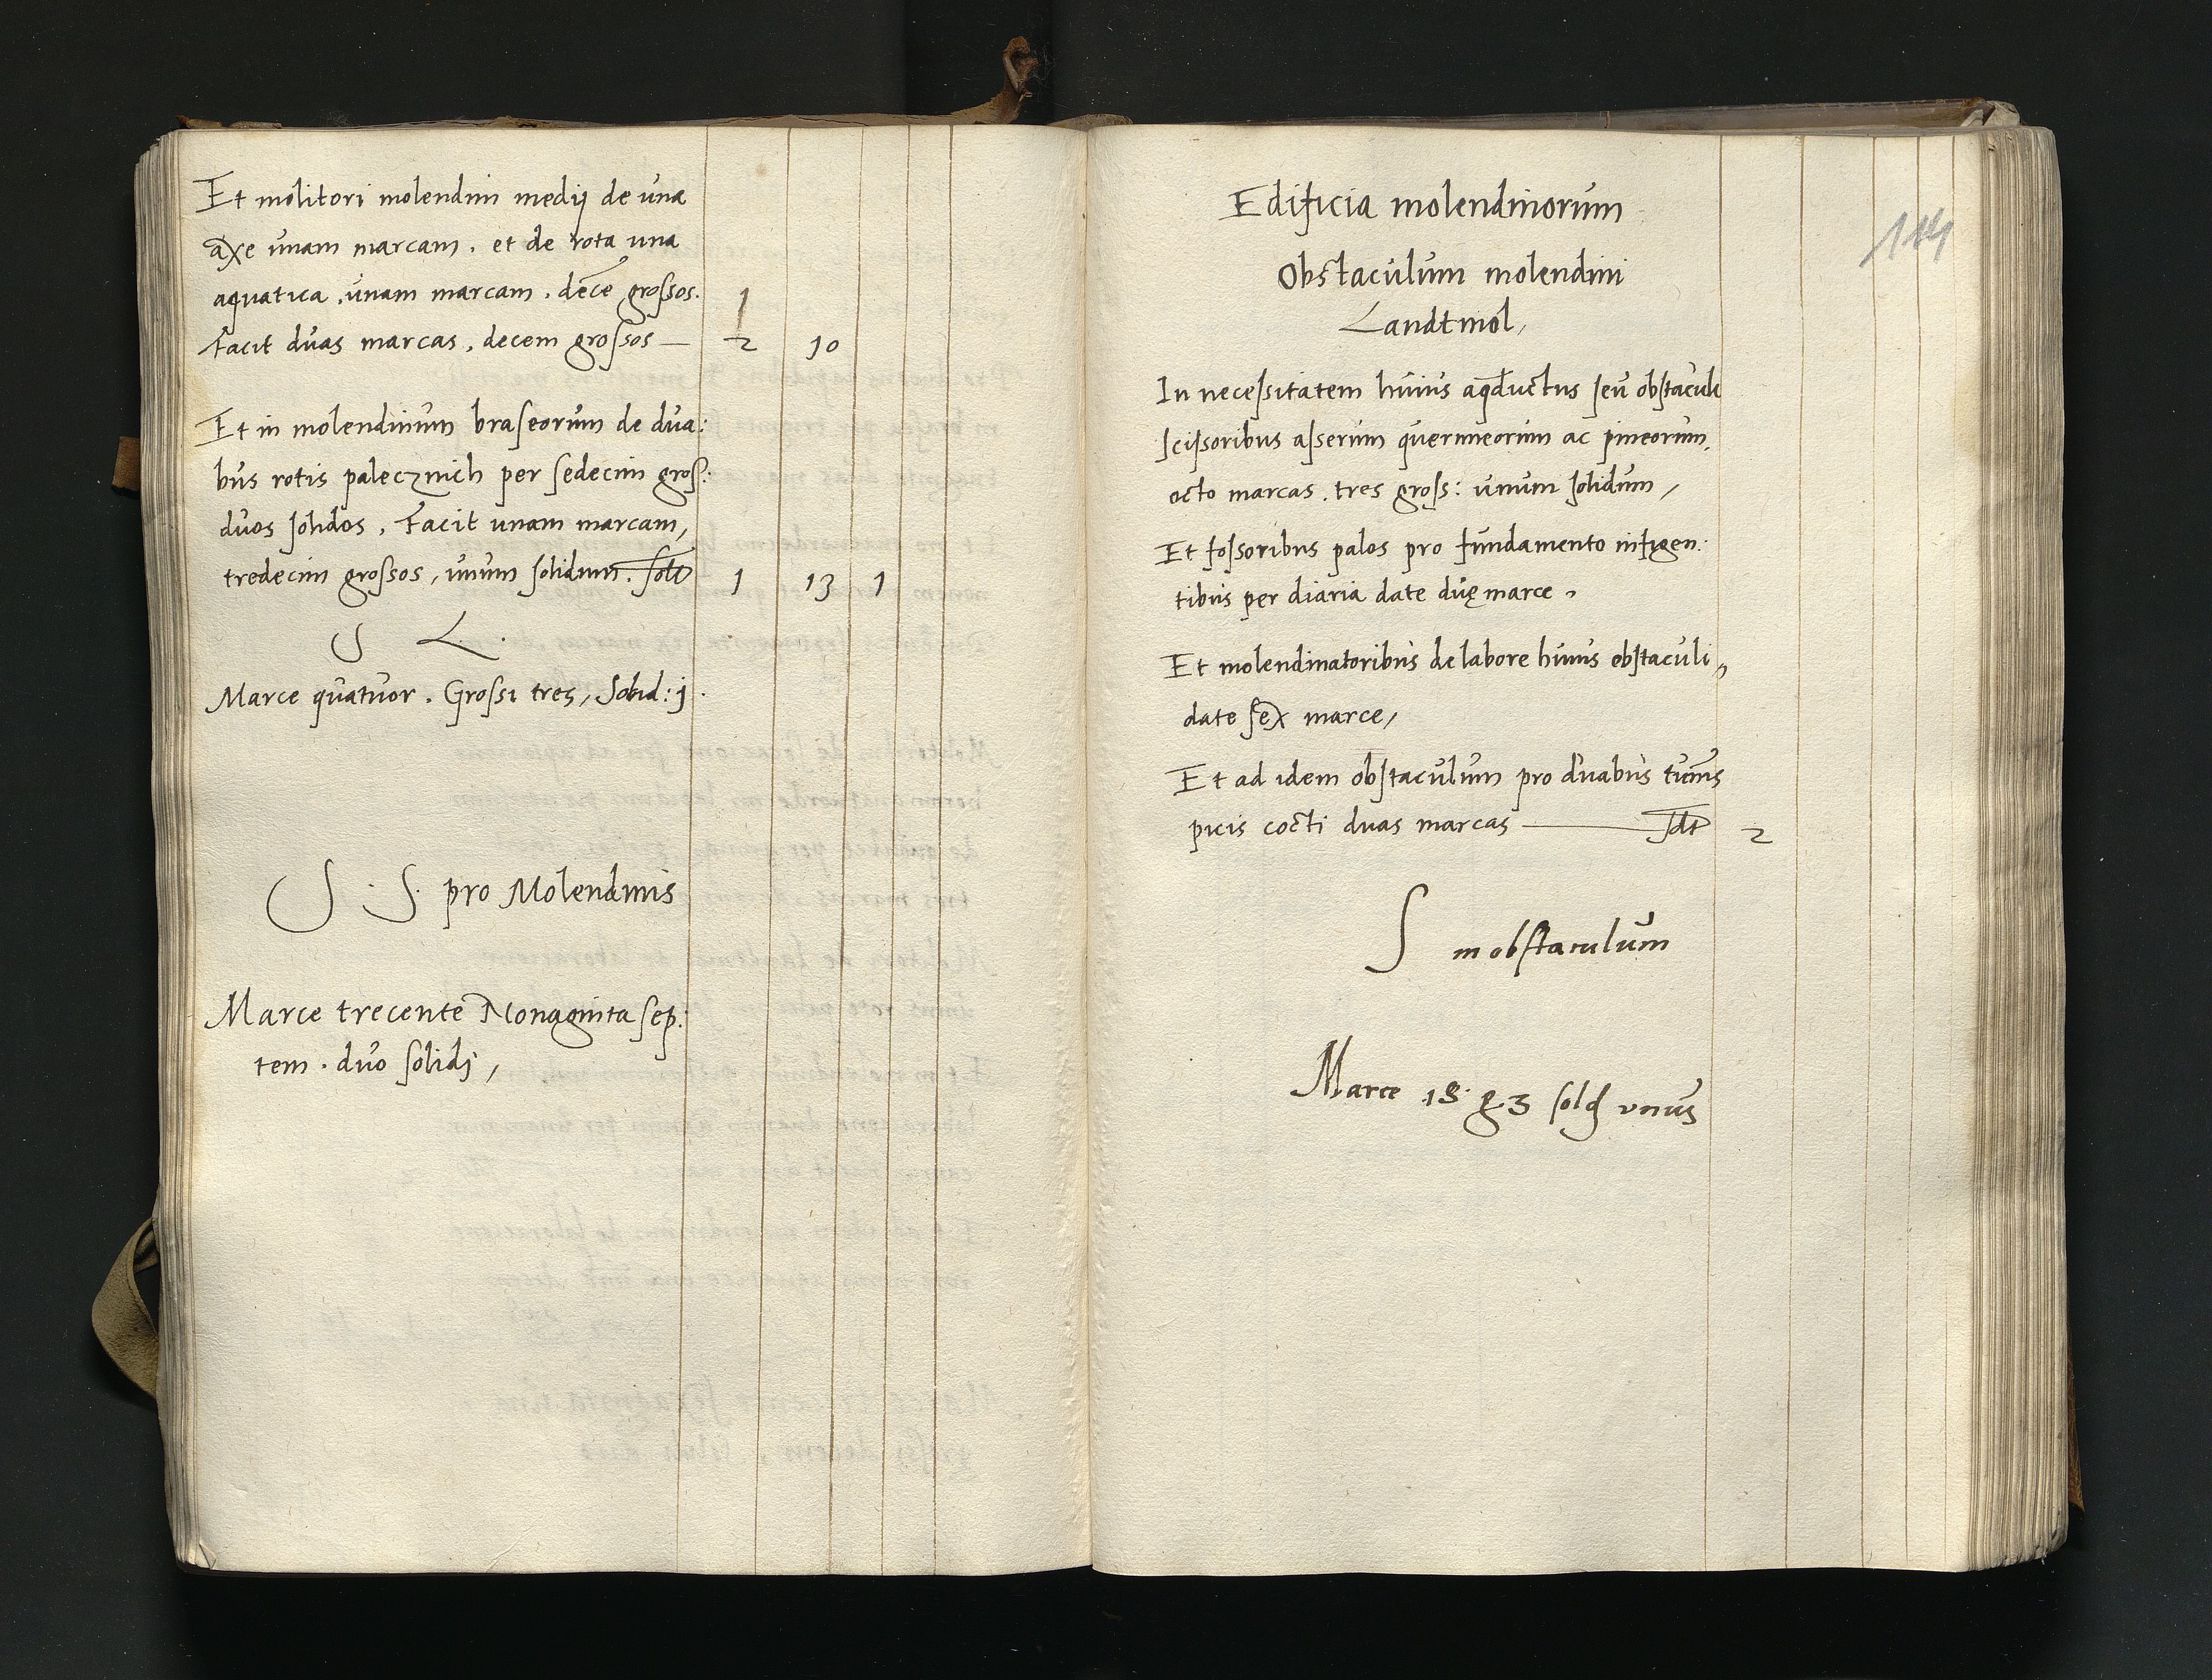 Et molitori molendini medij de una
axe unam marcam. et de rota una
aquatica. unam marcam. dece grossos. 1
Facit duas marcas, decem grossos — 2 10
Et in molendinum braseorum de dua:
bus rotis palecznich per sedecim gros:
duos solidos. Facit unam marcam,
tredecim grossos, unum solidum. 1 13 1
S L.
Marce quatuor. Grossi tres, Solid: j.
S. S. pro Molendinis
Marce trecente Nonaginta sep:
tem. duo solidj,
114
Edificia molendinorum
Obstaculum molendini
Landtmol,
In necessitatem huius aqductus seu obstaculi
scissoribus asserum querneorum ac pineorum,
octo marcas. tres gross: unum solidum,
Et fossoribus palos pro fundamento infigen:
tibus per diaria date duę marce.
Et molendinatoribus de labore huius obstaculi,
date sex marce,
Et ad idem obstaculum pro duabus tunis
picis cocti duas marcas — 2
S in obstaculum
Marce 18. g 3 sold unus